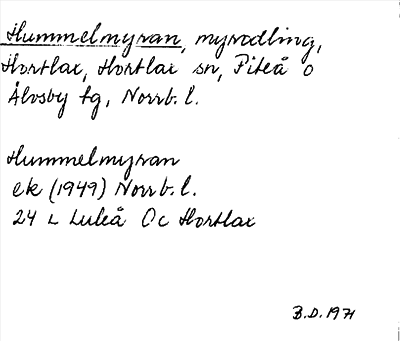 Hummelmyran, myrodling,
Hortlax, Hortlax sn, Piteå o
Älvsby tg, Norrb. l.
Hummelmyran
ek (1949) Norrb. l.
24 L Luleå Oc Hortlax
B.D. 1971